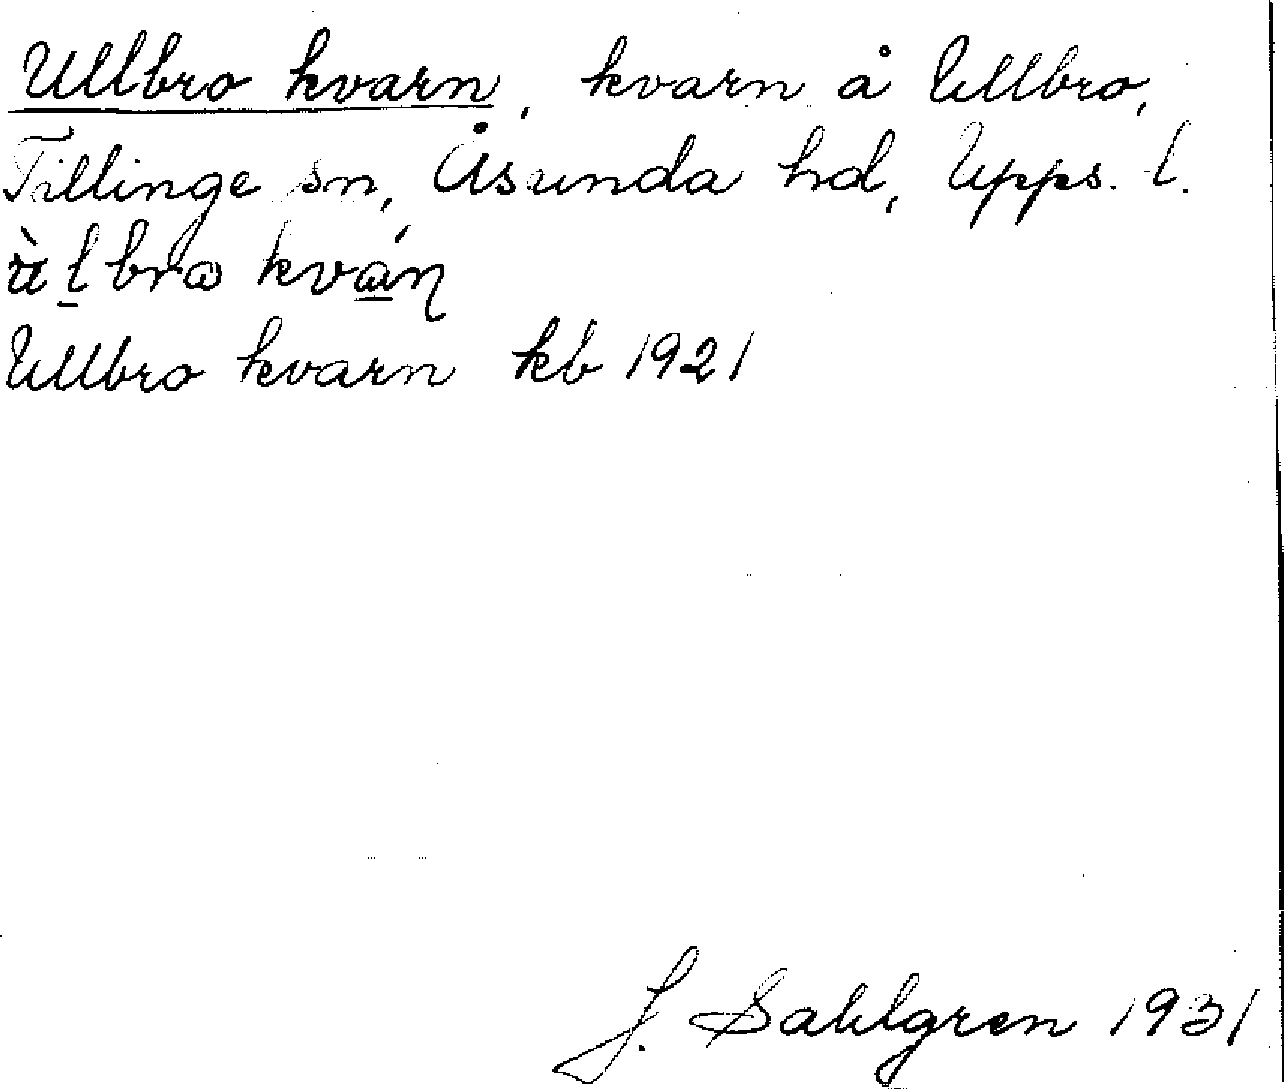 Ullbro kvarn, kvarn å Ullbro,
Tillinge sn, Åsunda hd, Upps. l.
Ullbro kvarn kb 1921
J. Sahlgren 1931